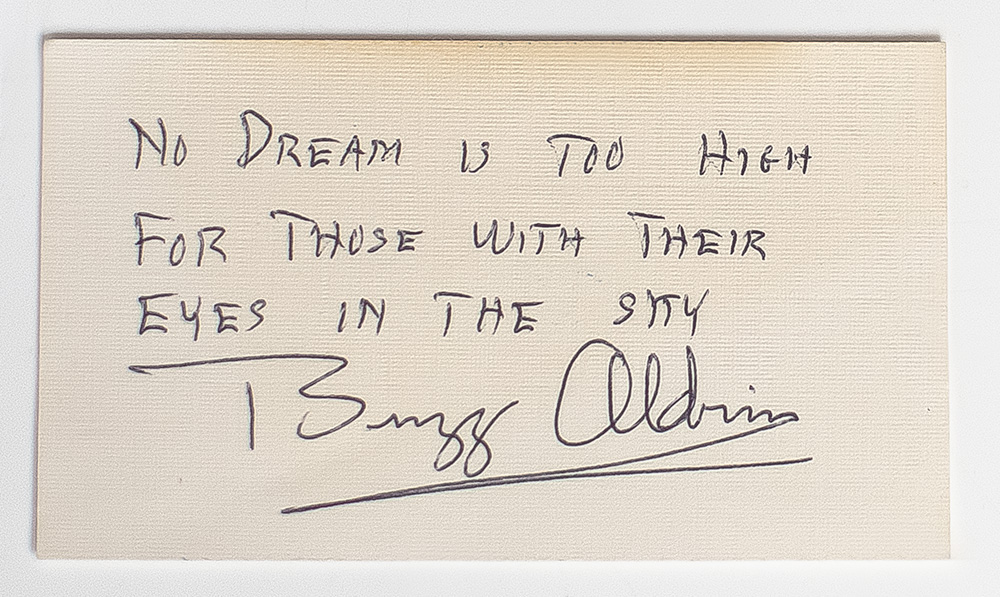 No Dream is Too High
For Those With Their
Eyes in The sky
Buzz Aldrin